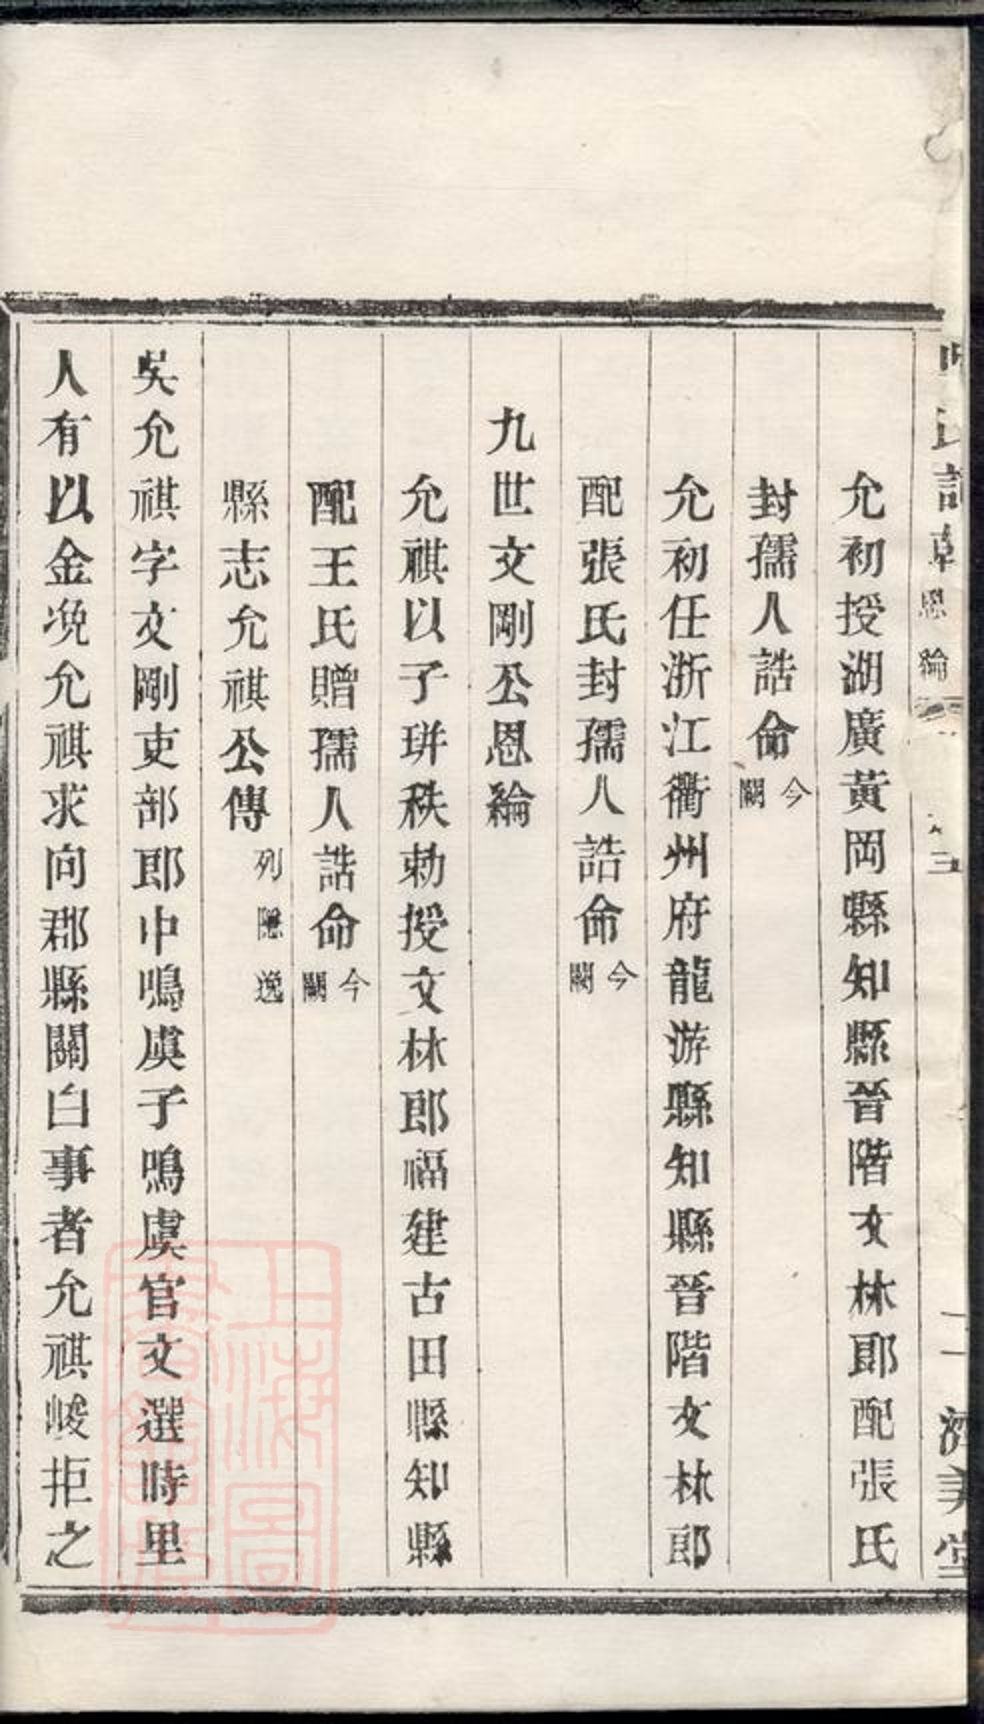 允初授湖廣黃岡縣知縣晉階文林郎配張氏
封孺人誥命今闕
允初任浙江衢州府龍游縣知縣晉階文林郎
配張氏封孺人誥命今闕
九世文剛公恩綸
允祺以子珙秩勅授文林郎福建古田縣知縣
配王氏贈孺人誥命今闕
縣志允祺公傳列隱逸
吳允祺字文剛吏部郎中鳴虞子鳴虞官文選時里
人有以金浼允祺求向郡縣關白事者允祺峻拒之
恩綸
濟美堂
上海圖書館藏